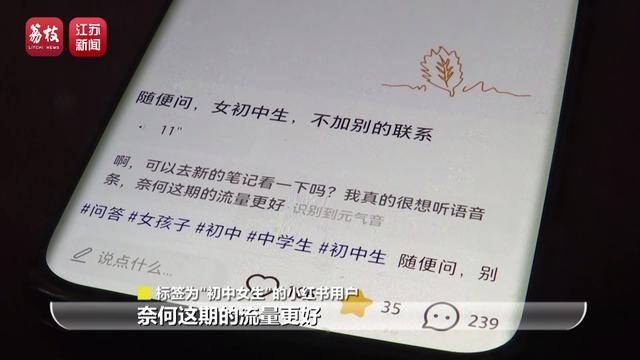 荔枝
LITCHI NEWS
江苏
新闻
随便问，女初中生，不加别的联系
· 11"
啊，可以去新的笔记看一下吗？我真的很想听语音
条，奈何这期的流量更好 识别到元气音
#问答 #女孩子 #初中 #中学生 #初中生 随便问，别
说点什么...
35
239
标签为“初中女生”的小红书用户
奈何这期的流量更好